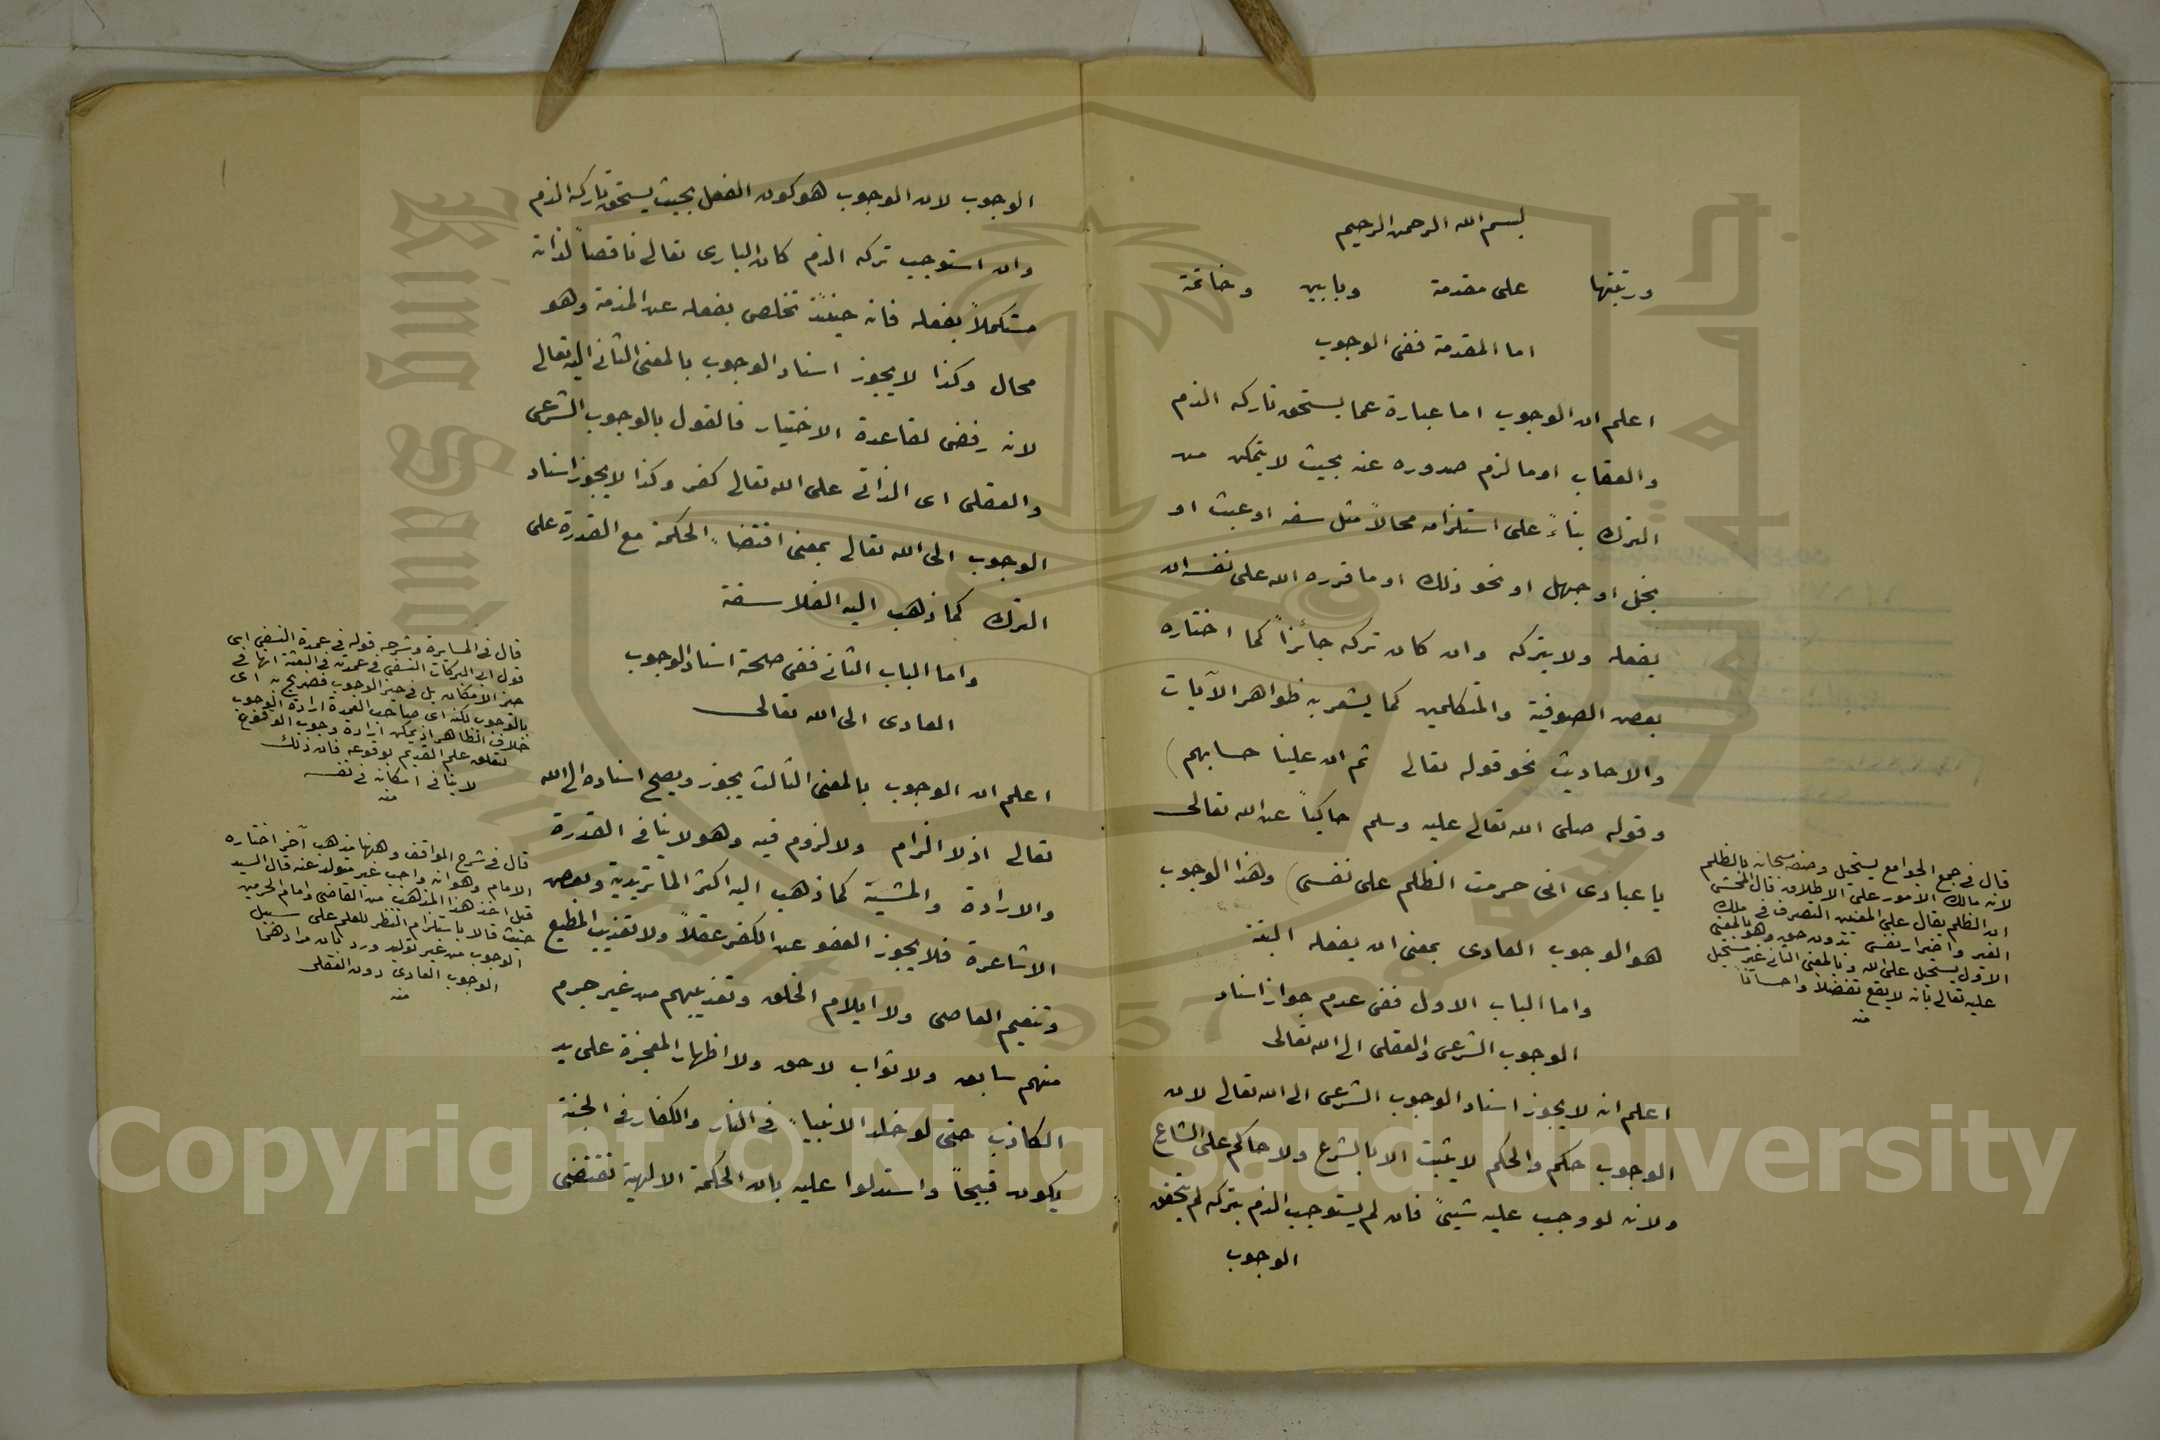 بسم الله الرحمن الرحيم
ورتبتها على مقدمة وبابين وخاتمة
اما المقدمة ففى الوجوب
اعلم ان الوجوب اما عبارة عما يستحق تاركه الذم
والعقاب او ما لزم صدوره عنه بحيث لا يتمكن من
الترك بناءً على استلزامه محالاً مثل سفه او عبث او
بخل او جهل او نحو ذلك او ما قرره الله على نفسه ان
يفعله ولا يتركه وان كان تركه جائزاً كما اختاره
بعض الصوفية والمتكلمين كما يشعر به ظواهر الآيات
والاحاديث نحو قوله تعالى ثم ان علينا حسابهم)
وقوله صلى الله تعالى عليه وسلم حاكياً عن الله تعالى
يا عبادى انى حرمت الظلم على نفسى) وهذا الوجوب
هو الوجوب العادى بمعنى ان يفعله البتة
واما الباب الاول ففى عدم جواز اسناد
الوجوب الشرعى والعقلى الى الله تعالى
اعلم انه لا يجوز اسناد الوجوب الشرعى الى الله تعالى لان
الوجوب حكم والحكم لا يثبت الا بالشرع ولا حاكم على الشاع
ولانه لو وجب عليه شيئً فان لم يستوجب الذم بتركه لم يتحقق
الوجوب
قال فى جمع الجوامع يستحيل وصفه سبحانه بالظلم
لانه مالك الامور على الاطلاق قال المحشى
ان الظلم يقال على المعنيين التصرف فى ملك
الغير واضرار نفس بدون حق وهو بالمعنى
الاول يستحيل على الله وبالمعنى الثانى غير مستحيل
عليه تعالى بانه لا يقع تفضلاً واحساناً
منه
الوجوب لان الوجوب هو كون الفعل بحيث يستحق تاركه الذم
وان استوجب تركه الذم كان البارى تعالى ناقصاً لذاته
مستكملاً بفعله فانه حينئذ تخلص بفعله عن المذمة وهو
محال وكذا لا يجوز اسناد الوجوب بالمعنى الثانى اليه تعالى
لانه رفض لقاعدة الاختيار فالقول بالوجوب الشرعى
والعقلى اى الذاتى على الله تعالى كفر وكذا لا يجوز اسناد
الوجوب الى الله تعالى بمعنى اقتضاء الحكمة مع القدرة على
الترك كما ذهب اليه الفلاسفة
واما الباب الثانى ففى صحة اسناد الوجوب
العادى الى الله تعالى
اعلم ان الوجوب بالمعنى الثالث يجوز ويصح اسناده الى الله
تعالى اذ لا الزام ولا لزوم فيه وهو لا ينافى القدرة
والارادة والمشية كما ذهب اليه اكثر الماتريدية وبعض
الاشاعرة فلا يجوز العفو عن الكفر عقلاً ولا تعذيب المطيع
وتنعيم العاصى ولا ايلام الخلق وتعذيبهم من غير جرم
منهم سابق ولا ثواب لاحق ولا اظهار المعجزة على يد
الكاذب حتى لو خلد الانبياء فى النار والكفار فى الجنة
يكون قبيحاً واستدلوا عليه بان الحكمة الالهية تقتضى
قال فى المسايرة وشرحه قوله فى عمدة النسفى اى
قول ابى البركات النسفى فى عمدته فى البعثة انها فى
حيز الامكان بل فى حيز الوجوب فصريح به اى
بالوجوب لكنه اى صاحب العمدة ارادة الوجوب
خلاف الظاهر اذ يمكن ارادة وجوب الوقوع
لتعلق علم القديم لوقوعه فان ذلك
لا ينافى امكانه فى نفسه
منه
قال فى شرح المواقف وههنا مذهب آخر اختاره
الامام وهو انه واجب غير متولد عنه قال السيد
قيل اخذ هذا المذهب من القاضى وامام الحرمين
حيث قالا باستلزام النظر للعلم على سبيل
الوجوب من غير توليد ورد بان مرادهما
الوجوب العادى دون العقلى
منه
جامعة الملك سعود
King Saud University
1957
Copyright © King Saud University